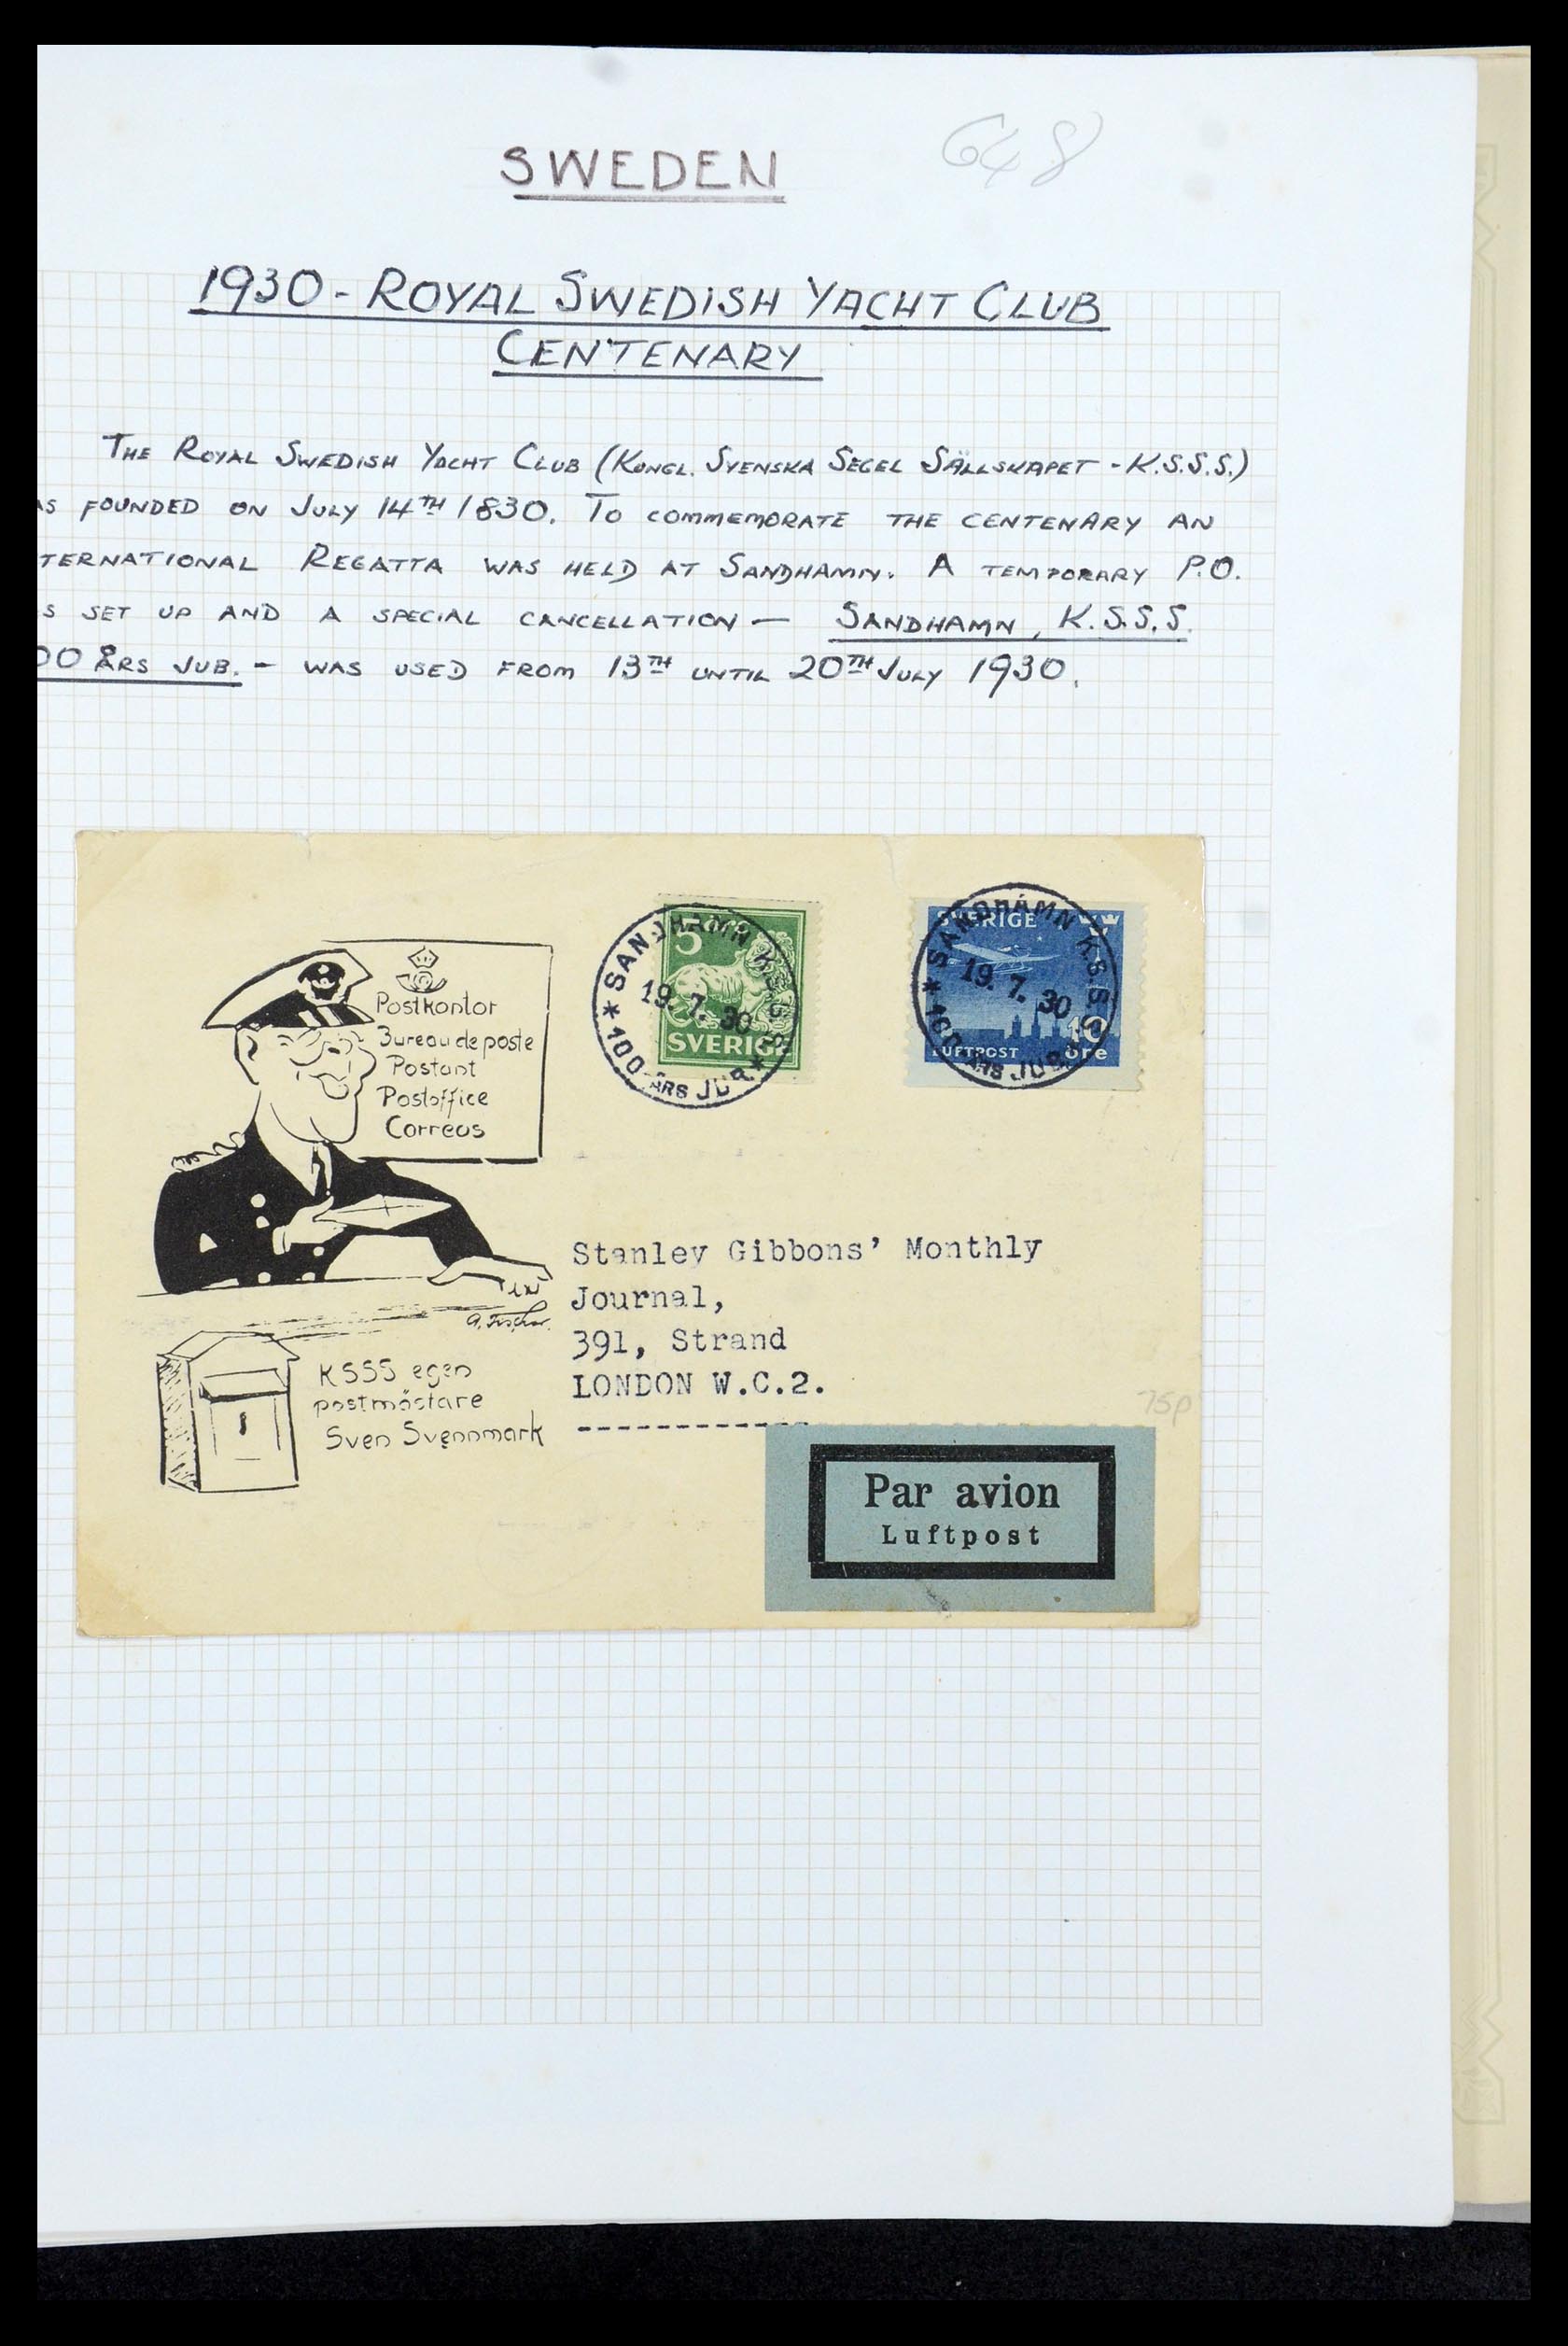 SWEDEN
648
1930 - ROYAL SWEDISH YACHT CLUB
CENTENARY
THE ROYAL SWEDISH YACHT CLUB (KUNGL. SVENSKA SEGEL SÄLLSKAPET - K.S.S.S.)
AS FOUNDED ON JULY 14TH 1830. TO COMMEMORATE THE CENTENARY AN
TERNATIONAL REGATTA WAS HELD AT SANDHAMN. A TEMPORARY P.O.
S SET UP AND A SPECIAL CANCELLATION — SANDHAMN, K.S.S.S.
00 ÅRS JUB. - WAS USED FROM 13TH UNTIL 20TH JULY 1930.
5 ÖRE
SVERIGE
SANDHAMN K.S.S.S.
19.7.30
* 100 ÅRS JUB. *
SVERIGE
10
LUFTPOST öre
SANDHAMN K.S.S.S.
19.7.30
* 100 ÅRS JUB. *
Postkontor
Bureau de poste
Postamt
Postoffice
Correos
KSSS egen
postmästare
Sven Svennmark
Stanley Gibbons' Monthly
Journal,
391, Strand
LONDON W.C.2.
------------
75p
Par avion
Luftpost